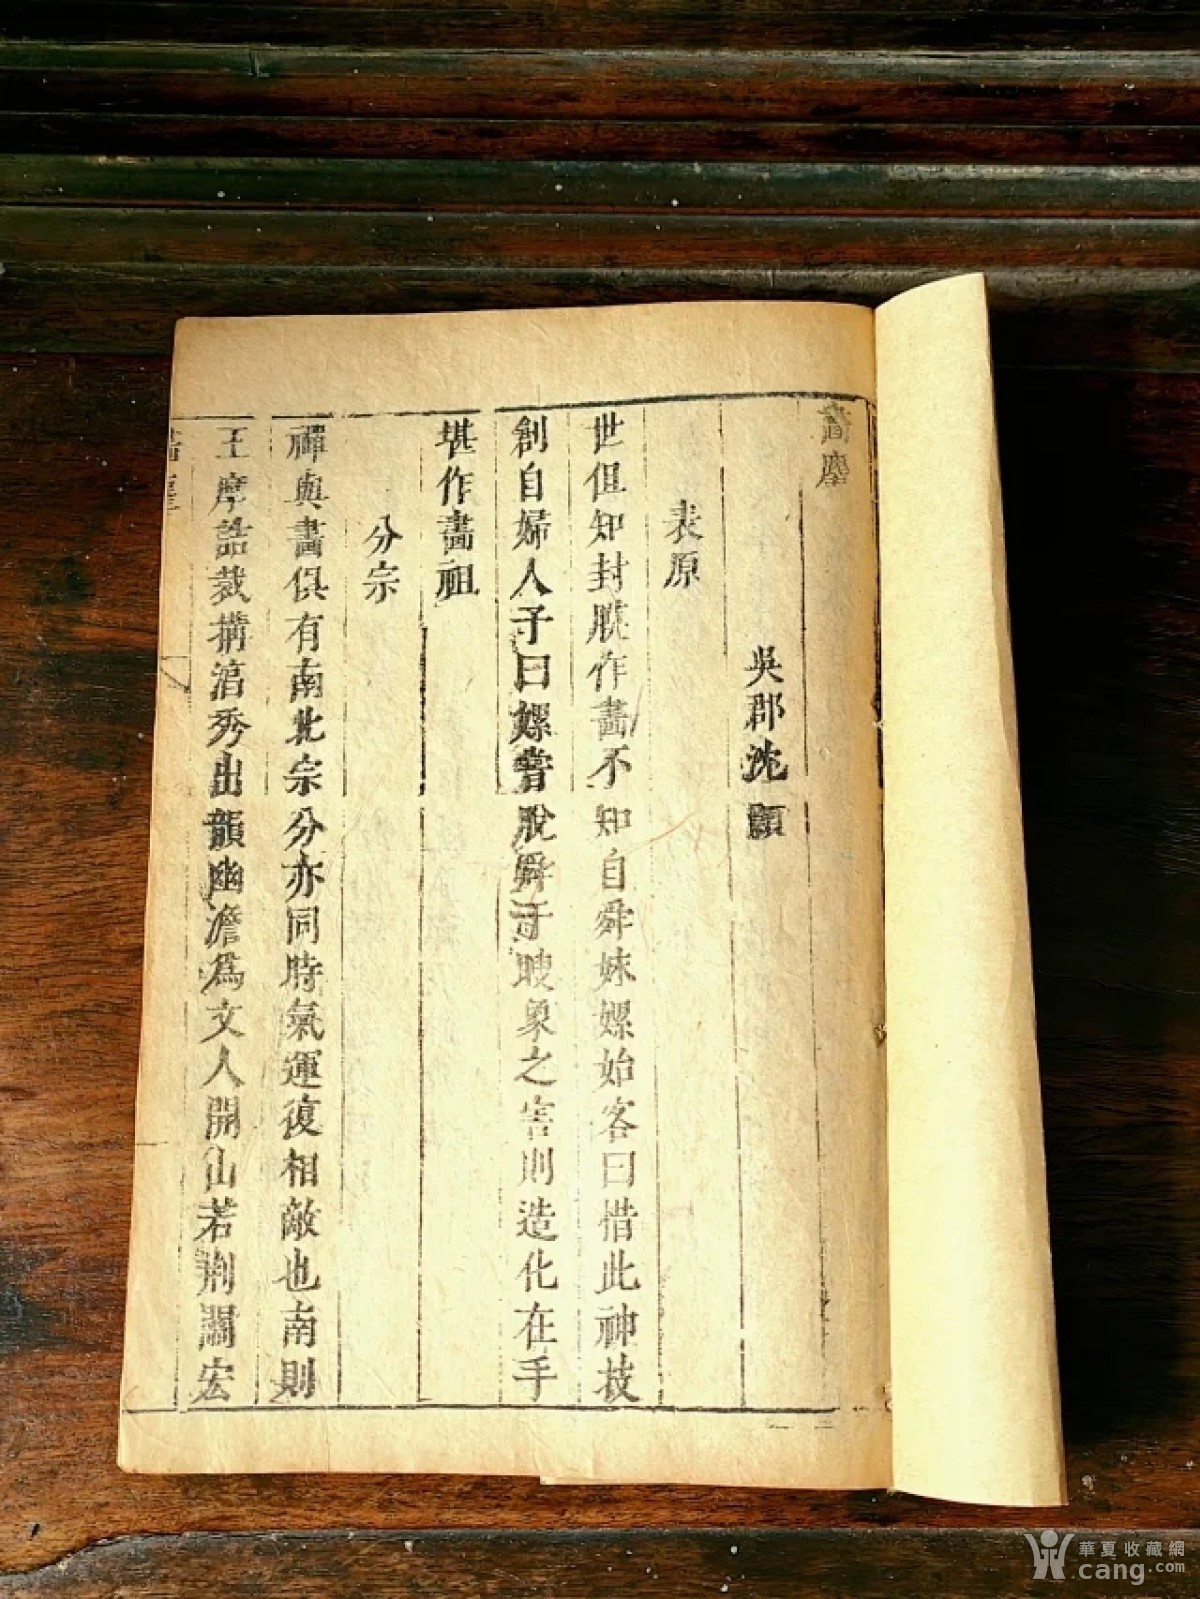 畫麈
吳郡沈顥
表原
世但知封膜作畫不知自舜妹嫘始客曰惜此神技
創自婦人予曰嫘嘗脫舜于瞍象之害則造化在手
堪作畫祖
分宗
禪與畫俱有南北宗分亦同時氣運復相敵也南則
王摩詰裁搆淳秀出韻幽澹為文人開山若荊關宏
華夏收藏網
cang.com